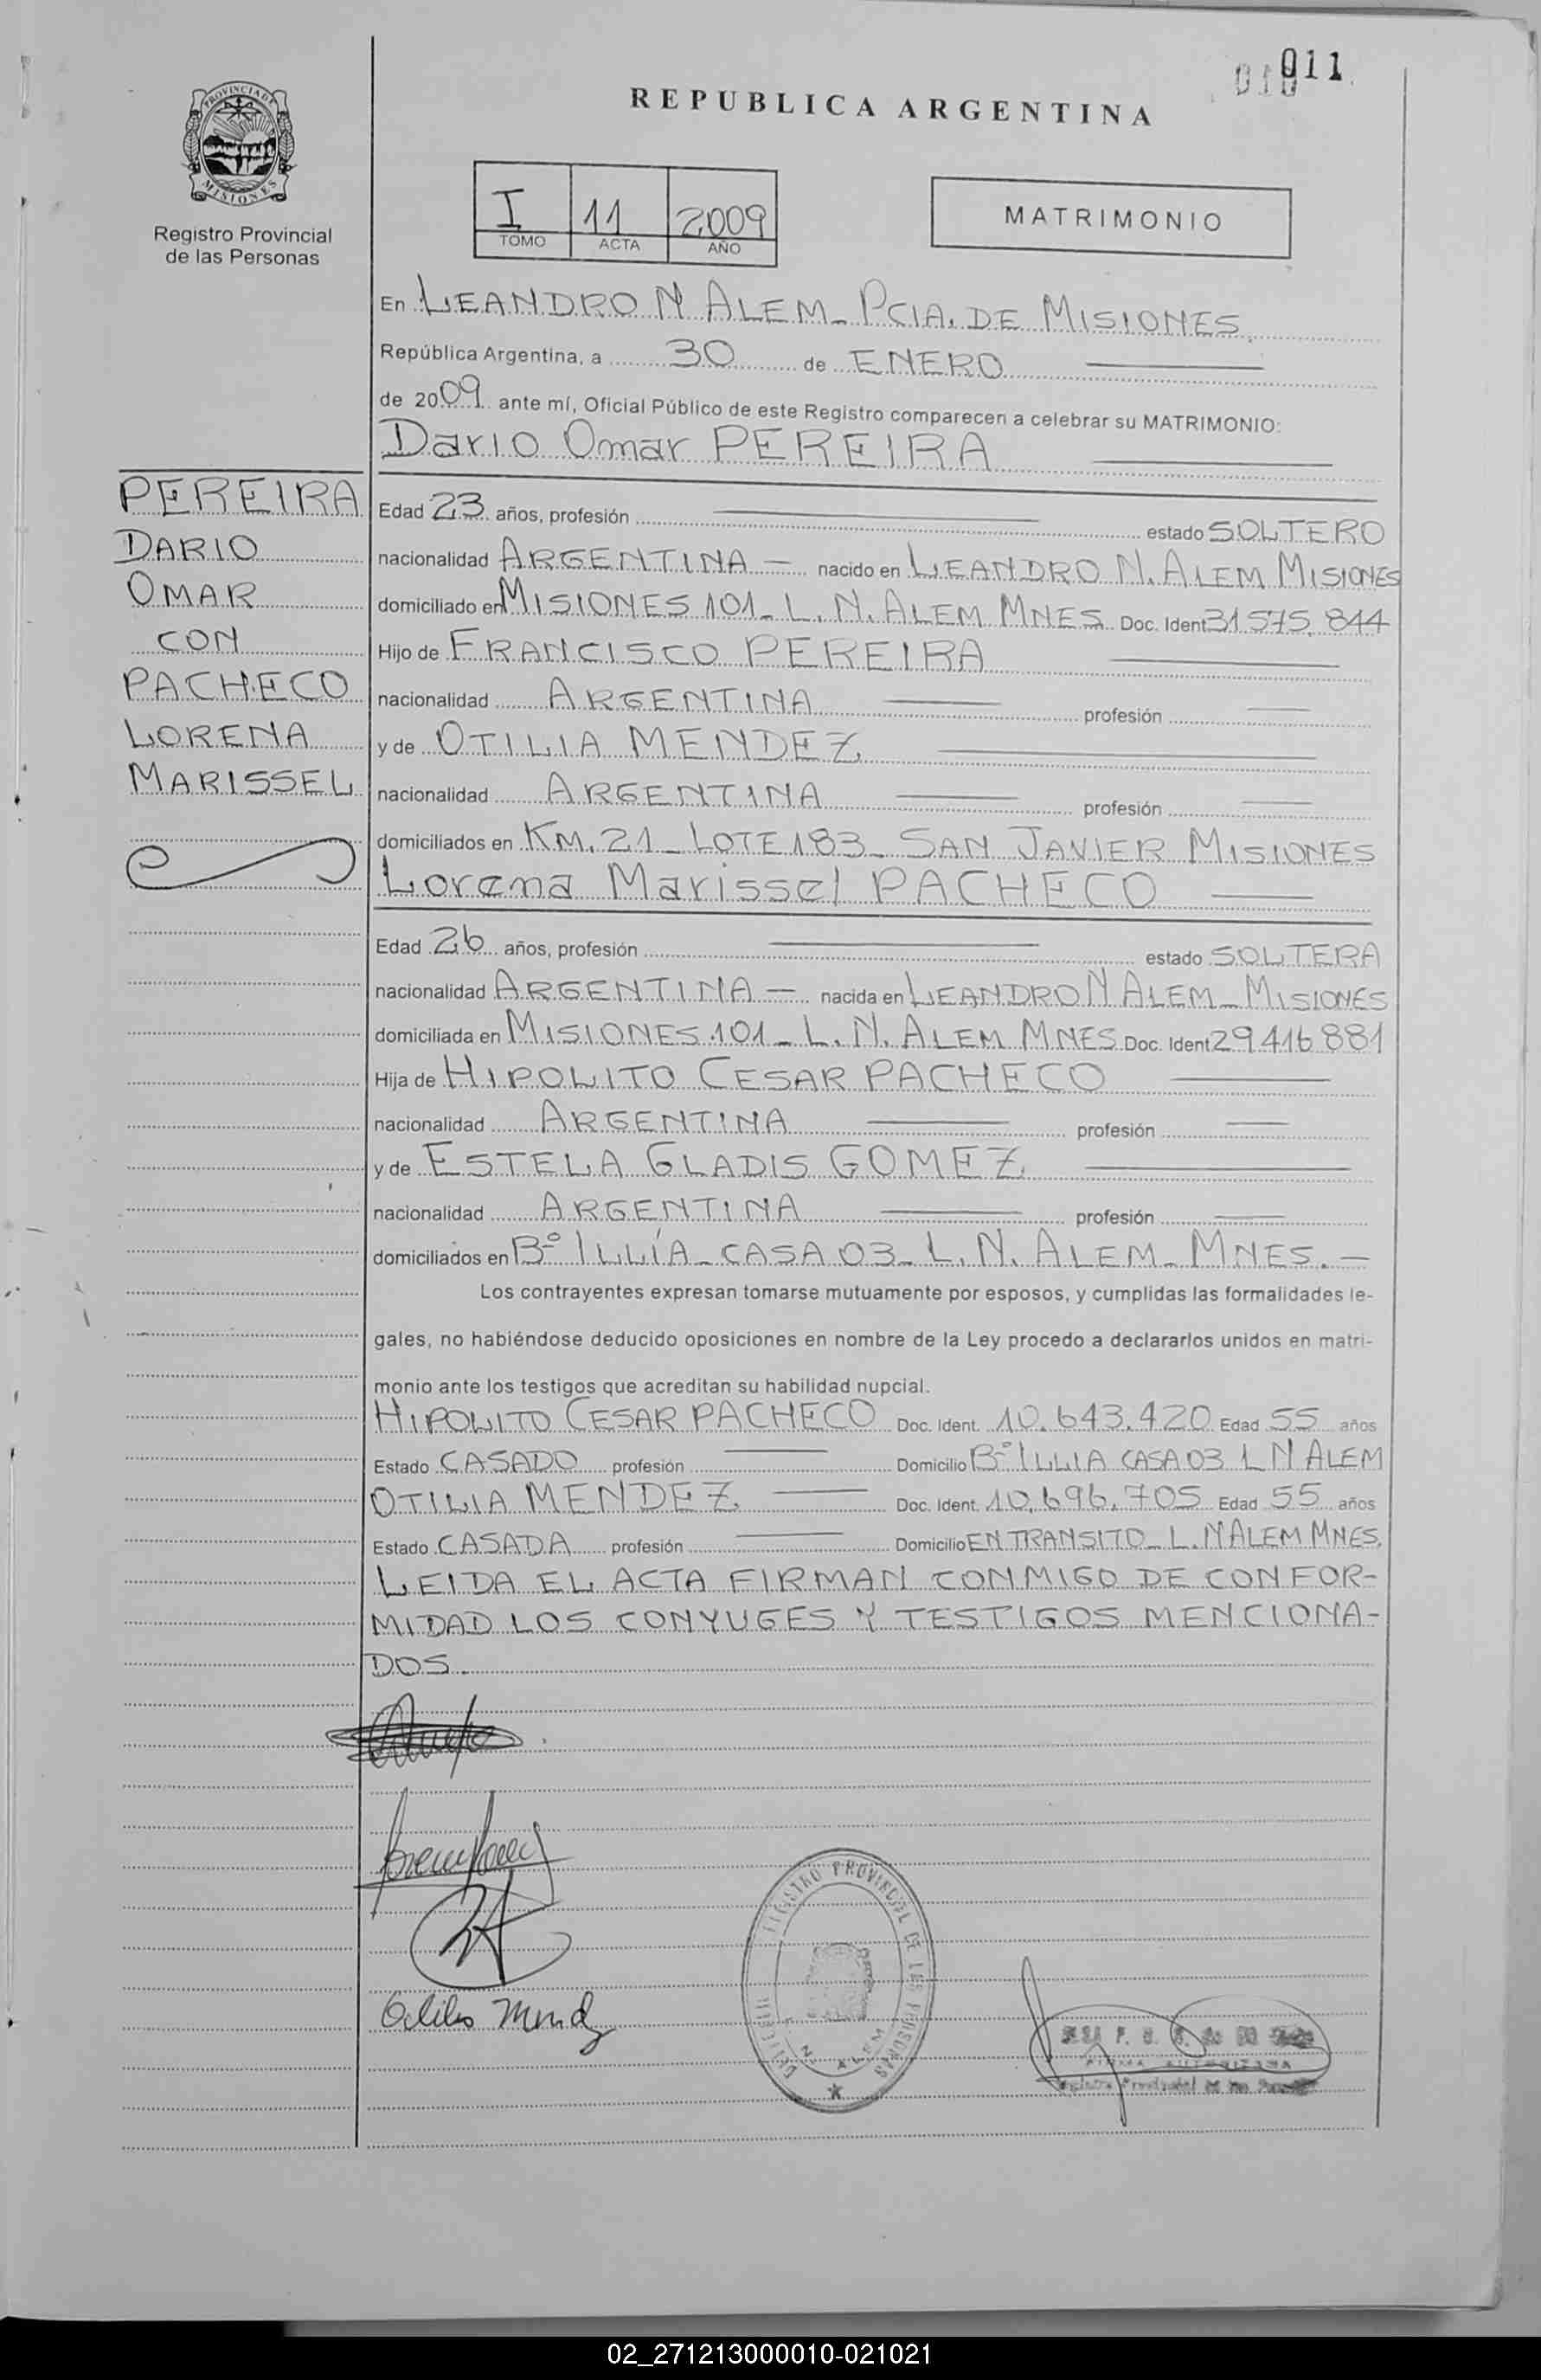 011
REPUBLICA ARGENTINA
PROVINCIA DE
MISIONES
Registro Provincial
de las Personas
I 11 2009
TOMO ACTA AÑO
MATRIMONIO
En LEANDRO N ALEM_ PCIA. DE MISIONES
República Argentina, a 30 de ENERO
de 2009 ante mí, Oficial Público de este Registro comparecen a celebrar su MATRIMONIO:
Dario Omar PEREIRA
PEREIRA
DARIO
OMAR
CON
PACHECO
LORENA
MARISSEL
Edad 23 años, profesión estado SOLTERO
nacionalidad ARGENTINA — nacido en LEANDRO N. ALEM MISIONES
domiciliado en MISIONES 101_ L. N. ALEM MNES Doc. Ident 31.575.844
Hijo de FRANCISCO PEREIRA
nacionalidad ARGENTINA profesión
y de OTILIA MENDEZ
nacionalidad ARGENTINA profesión
domiciliados en KM. 21_ LOTE 183_ SAN JAVIER MISIONES
Lorena Marissel PACHECO
Edad 26 años, profesión estado SOLTERA
nacionalidad ARGENTINA — nacida en LEANDRO N ALEM_ MISIONES
domiciliada en MISIONES 101_ L. N. ALEM MNES Doc. Ident 29.416.881
Hija de HIPOLITO CESAR PACHECO
nacionalidad ARGENTINA profesión
y de ESTELA GLADIS GOMEZ
nacionalidad ARGENTINA profesión
domiciliados en Bº ILLÍA_ CASA 03_ L. N. ALEM_ MNES. —
Los contrayentes expresan tomarse mutuamente por esposos, y cumplidas las formalidades le-
gales, no habiéndose deducido oposiciones en nombre de la Ley procedo a declararlos unidos en matri-
monio ante los testigos que acreditan su habilidad nupcial.
HIPOLITO CESAR PACHECO Doc. Ident. 10.643.420 Edad 55 años
Estado CASADO profesión Domicilio Bº ILLIA CASA 03 L N ALEM
OTILIA MENDEZ Doc. Ident. 10.696.705 Edad 55 años
Estado CASADA profesión Domicilio EN TRANSITO_ L. N ALEM MNES.
LEIDA EL ACTA FIRMAN CONMIGO DE CONFOR-
MIDAD LOS CONYUGES Y TESTIGOS MENCIONA-
DOS.
REGISTRO PROVINCIAL DE LAS PERSONAS
N. ALEM
02_271213000010-021021